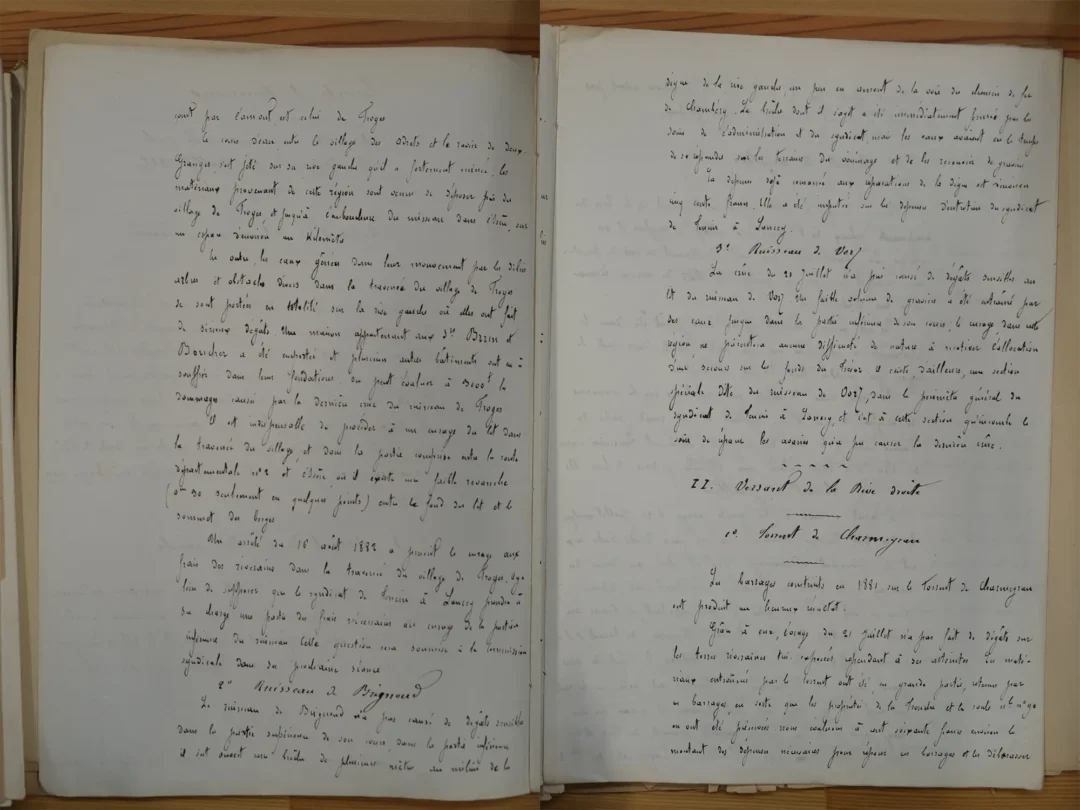 vont par l'amont est celui de Froges
le cours d'eau entre le village des Adrets et le ravin de deux
Granges s'est jeté sur sa rive gauche qu'il a fortement corrodé, les
matériaux provenant de cette région sont venus se déposer près du
village de Froges et jusqu'à l'embouchure du ruisseau dans l'Isère, sur
un espace d'environ un Kilomètre
En outre, les eaux gênées dans leur mouvement par les débris
arbres et obstacles divers dans la traversée du village de Froges
se sont portées en totalité sur la rive gauche où elles ont fait
de sérieux dégâts. Une maison appartenant aux Srs Brun et
Boucher a été et plusieurs autres bâtiments ont eu à
souffrir dans leur fondations. On peut évaluer à 3000f le
dommage causé par la dernière crue du ruisseau de Froges
Il est indispensable de procéder à un curage du lit dans
la traversée du village, et dans la partie comprise entre la route
départementale n° 2 et l'Isère, où il existe une faible revanche
(0m 30 seulement en quelques points) entre le fond du lit et le
sommet des berges
Un arrêté du 16 août 1882 a prescrit le curage aux
frais des riverains dans la traversée du village de Froges. Il y a
lieu de supposer que le syndicat de Tencin à Lancey prendra à
sa charge une partie des frais nécessaires au curage de la partie
inférieure du ruisseau. Cette question sera soumise à la Commission
syndicale dans sa prochaine séance
2° Ruisseau de Brignoud
Le ruisseau de Brignoud n'a pas causé de dégâts sensibles
dans la partie supérieure de son cours, dans la partie inférieure
il s'est ouvert une brèche de plusieurs mètres au milieu de la
digue de la rive gauche, un peu en amont de la voie du chemin de fer
de Chambéry. La brèche dont il s'agit a été immédiatement fermée par les
soins de l'administration et du syndicat, mais les eaux avaient eu le temps
de se répandre sur les terrains du voisinage et de les recouvrir de graviers
La dépense déjà consacrée aux réparations de la digue est d'environ
cinq cents francs. Elle a été imputée sur les dépenses d'entretien du syndicat
de Tencin à Lancey.
3° Ruisseau de Vorz
La crue du 21 Juillet n'a pas causé de dégâts sensibles au
lit du ruisseau de Vorz. Un faible volume de graviers a été entraîné par
des eaux jusque dans la partie inférieure de son cours, le curage, dans cette
région, ne présentera aucune difficulté de nature à motiver l'allocation
d'un secours sur les fonds du Trésor. Il existe, d'ailleurs, une section
spéciale dite du ruisseau de Vorz, dans le périmètre général du
syndicat de Tencin à Lancey, et c'est à cette section qu'incombe le
soin de réparer les avaries qu'a pu causer la dernière crue.
II. Versant de la Rive droite
1° Torrent de Charmeyran
Les barrages construits en 1881 sur le Torrent de Charmeyran
ont produit un heureux résultat.
Grâce à eux, l'orage du 21 Juillet n'a pas fait de dégâts sur
les terres riveraines très exposées cependant à ses atteintes. Les maté-
riaux entraînés par le torrent ont été, en grande partie, retenus par
ces barrages, en sorte que les propriétés de la Tronche et la route n° 90
en ont été préservées. Nous évaluons à cent soixante francs environ le
montant des dépenses nécessaires pour réparer ces barrages et les débarrasser